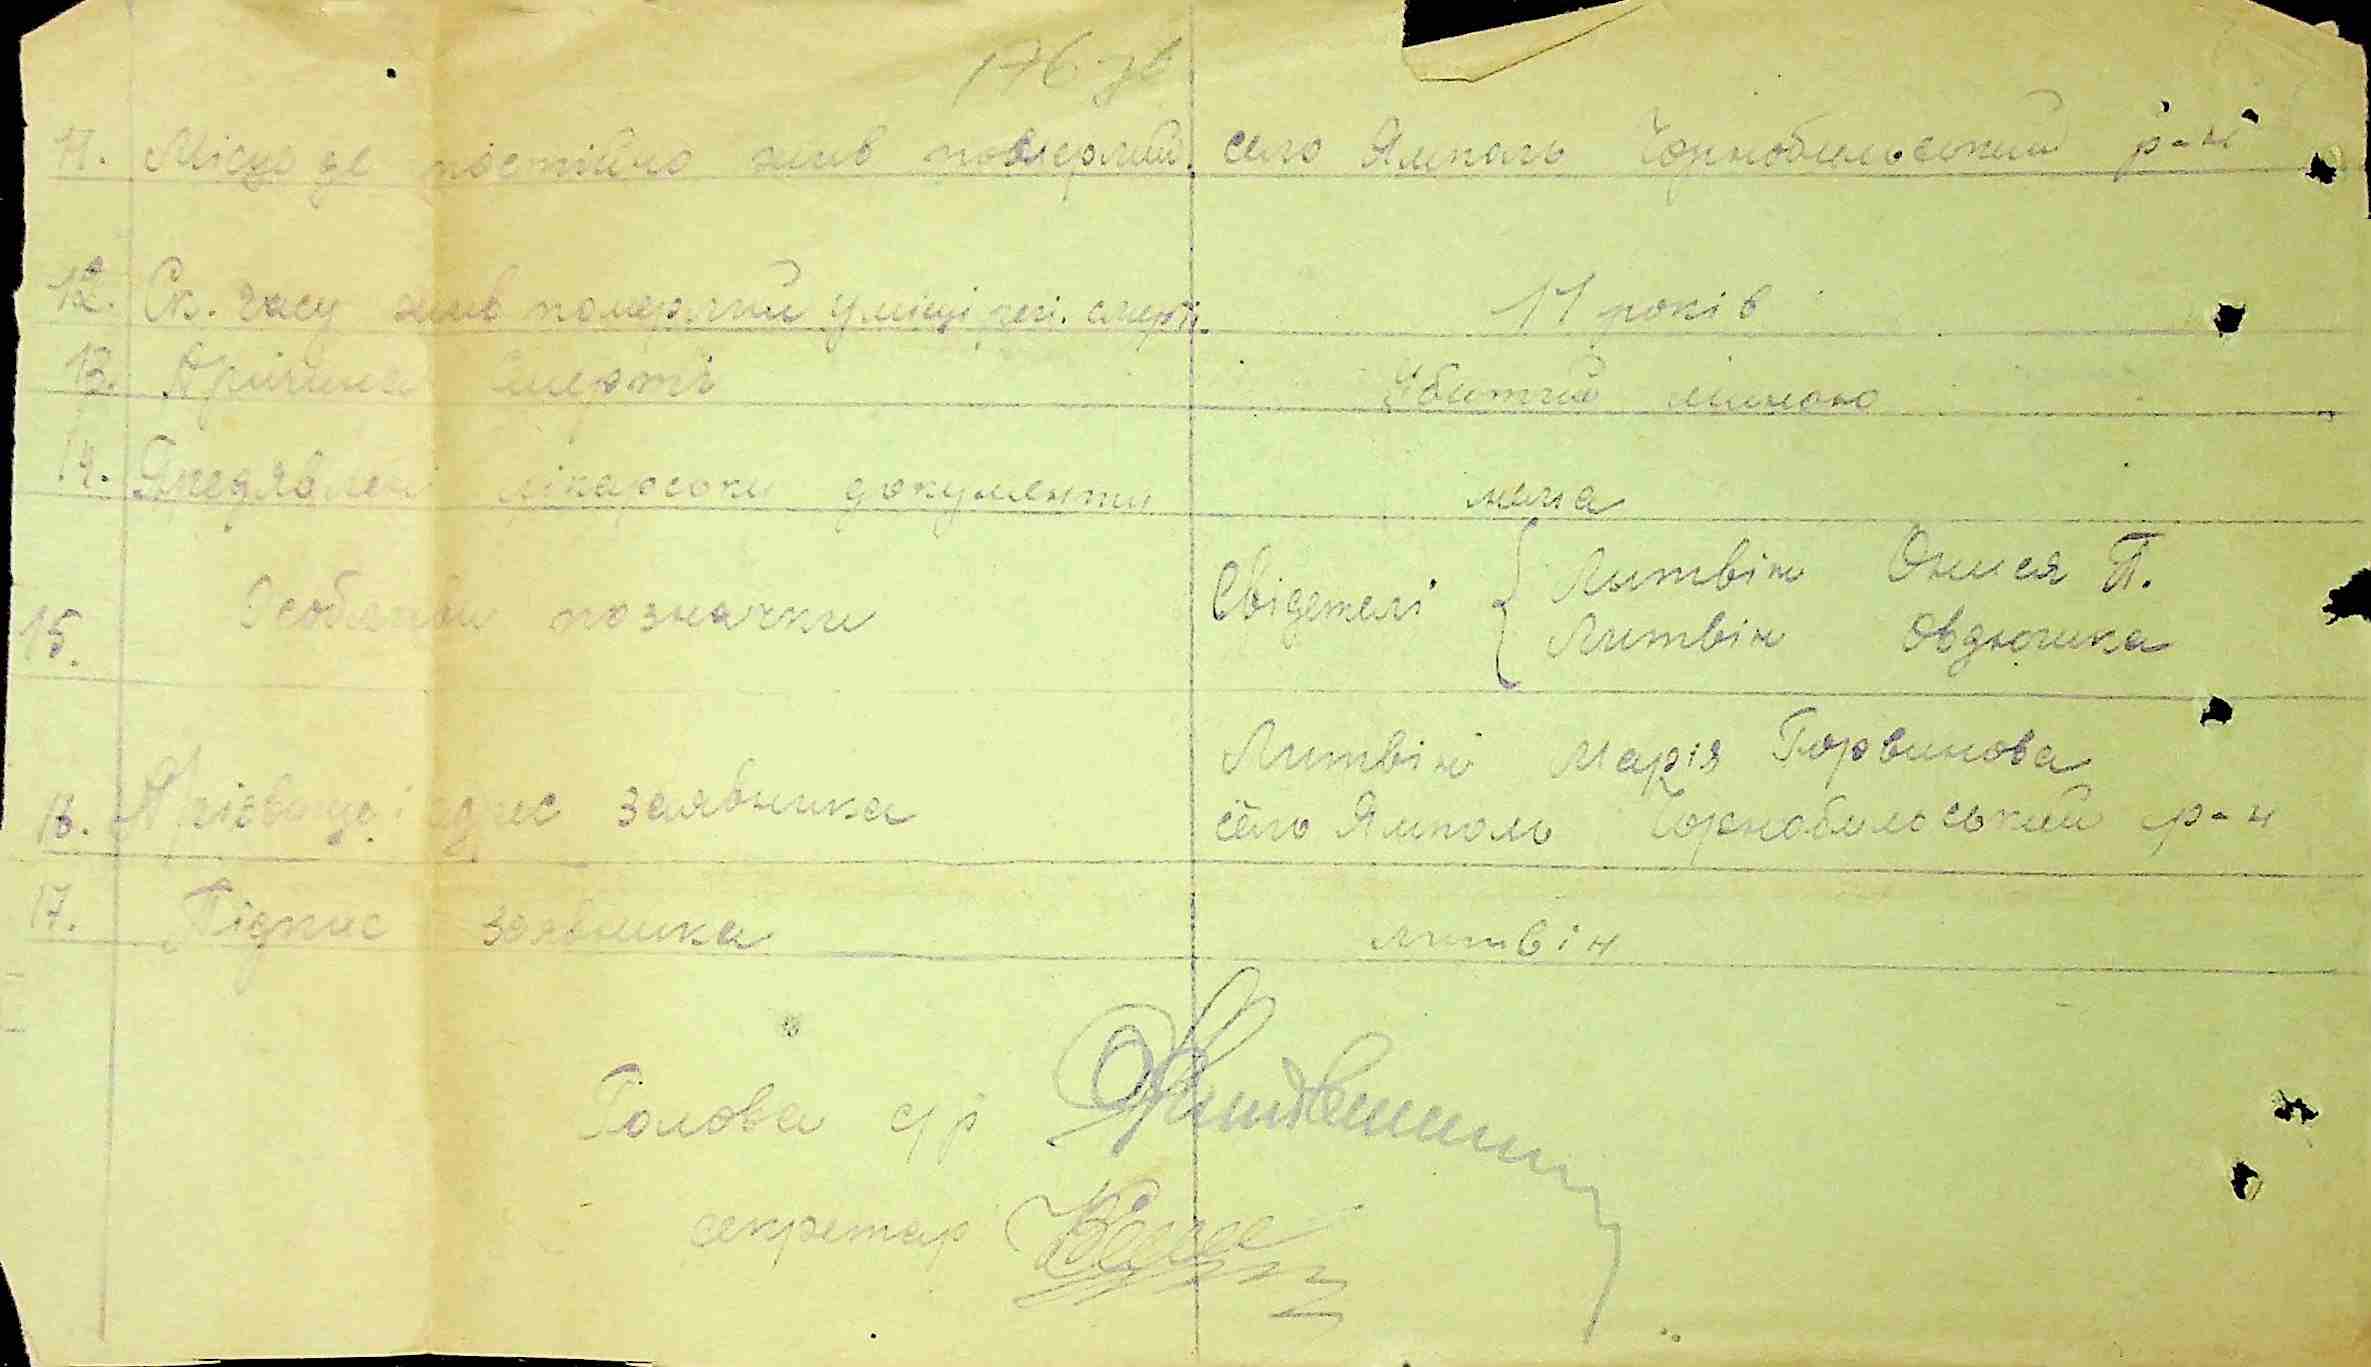 176 зв
11. Місце де постійно жив померлий. село Ямполь Чорнобильський р-н
12. Ск. часу жив померлий у місці реі. смерті. 11 років
13. Причина смерті Убитий міною
14. Предявлені лікарськи документи нима
15. Особливи позначки Свідетелі { Литвін Онися П.
Литвін Овдюшка
16. Прізвище і адрес заявника Литвін Марія
село Ямполь Чорнобильський р-н
17. Підпис заявника литвін
Голова с/р
секретар